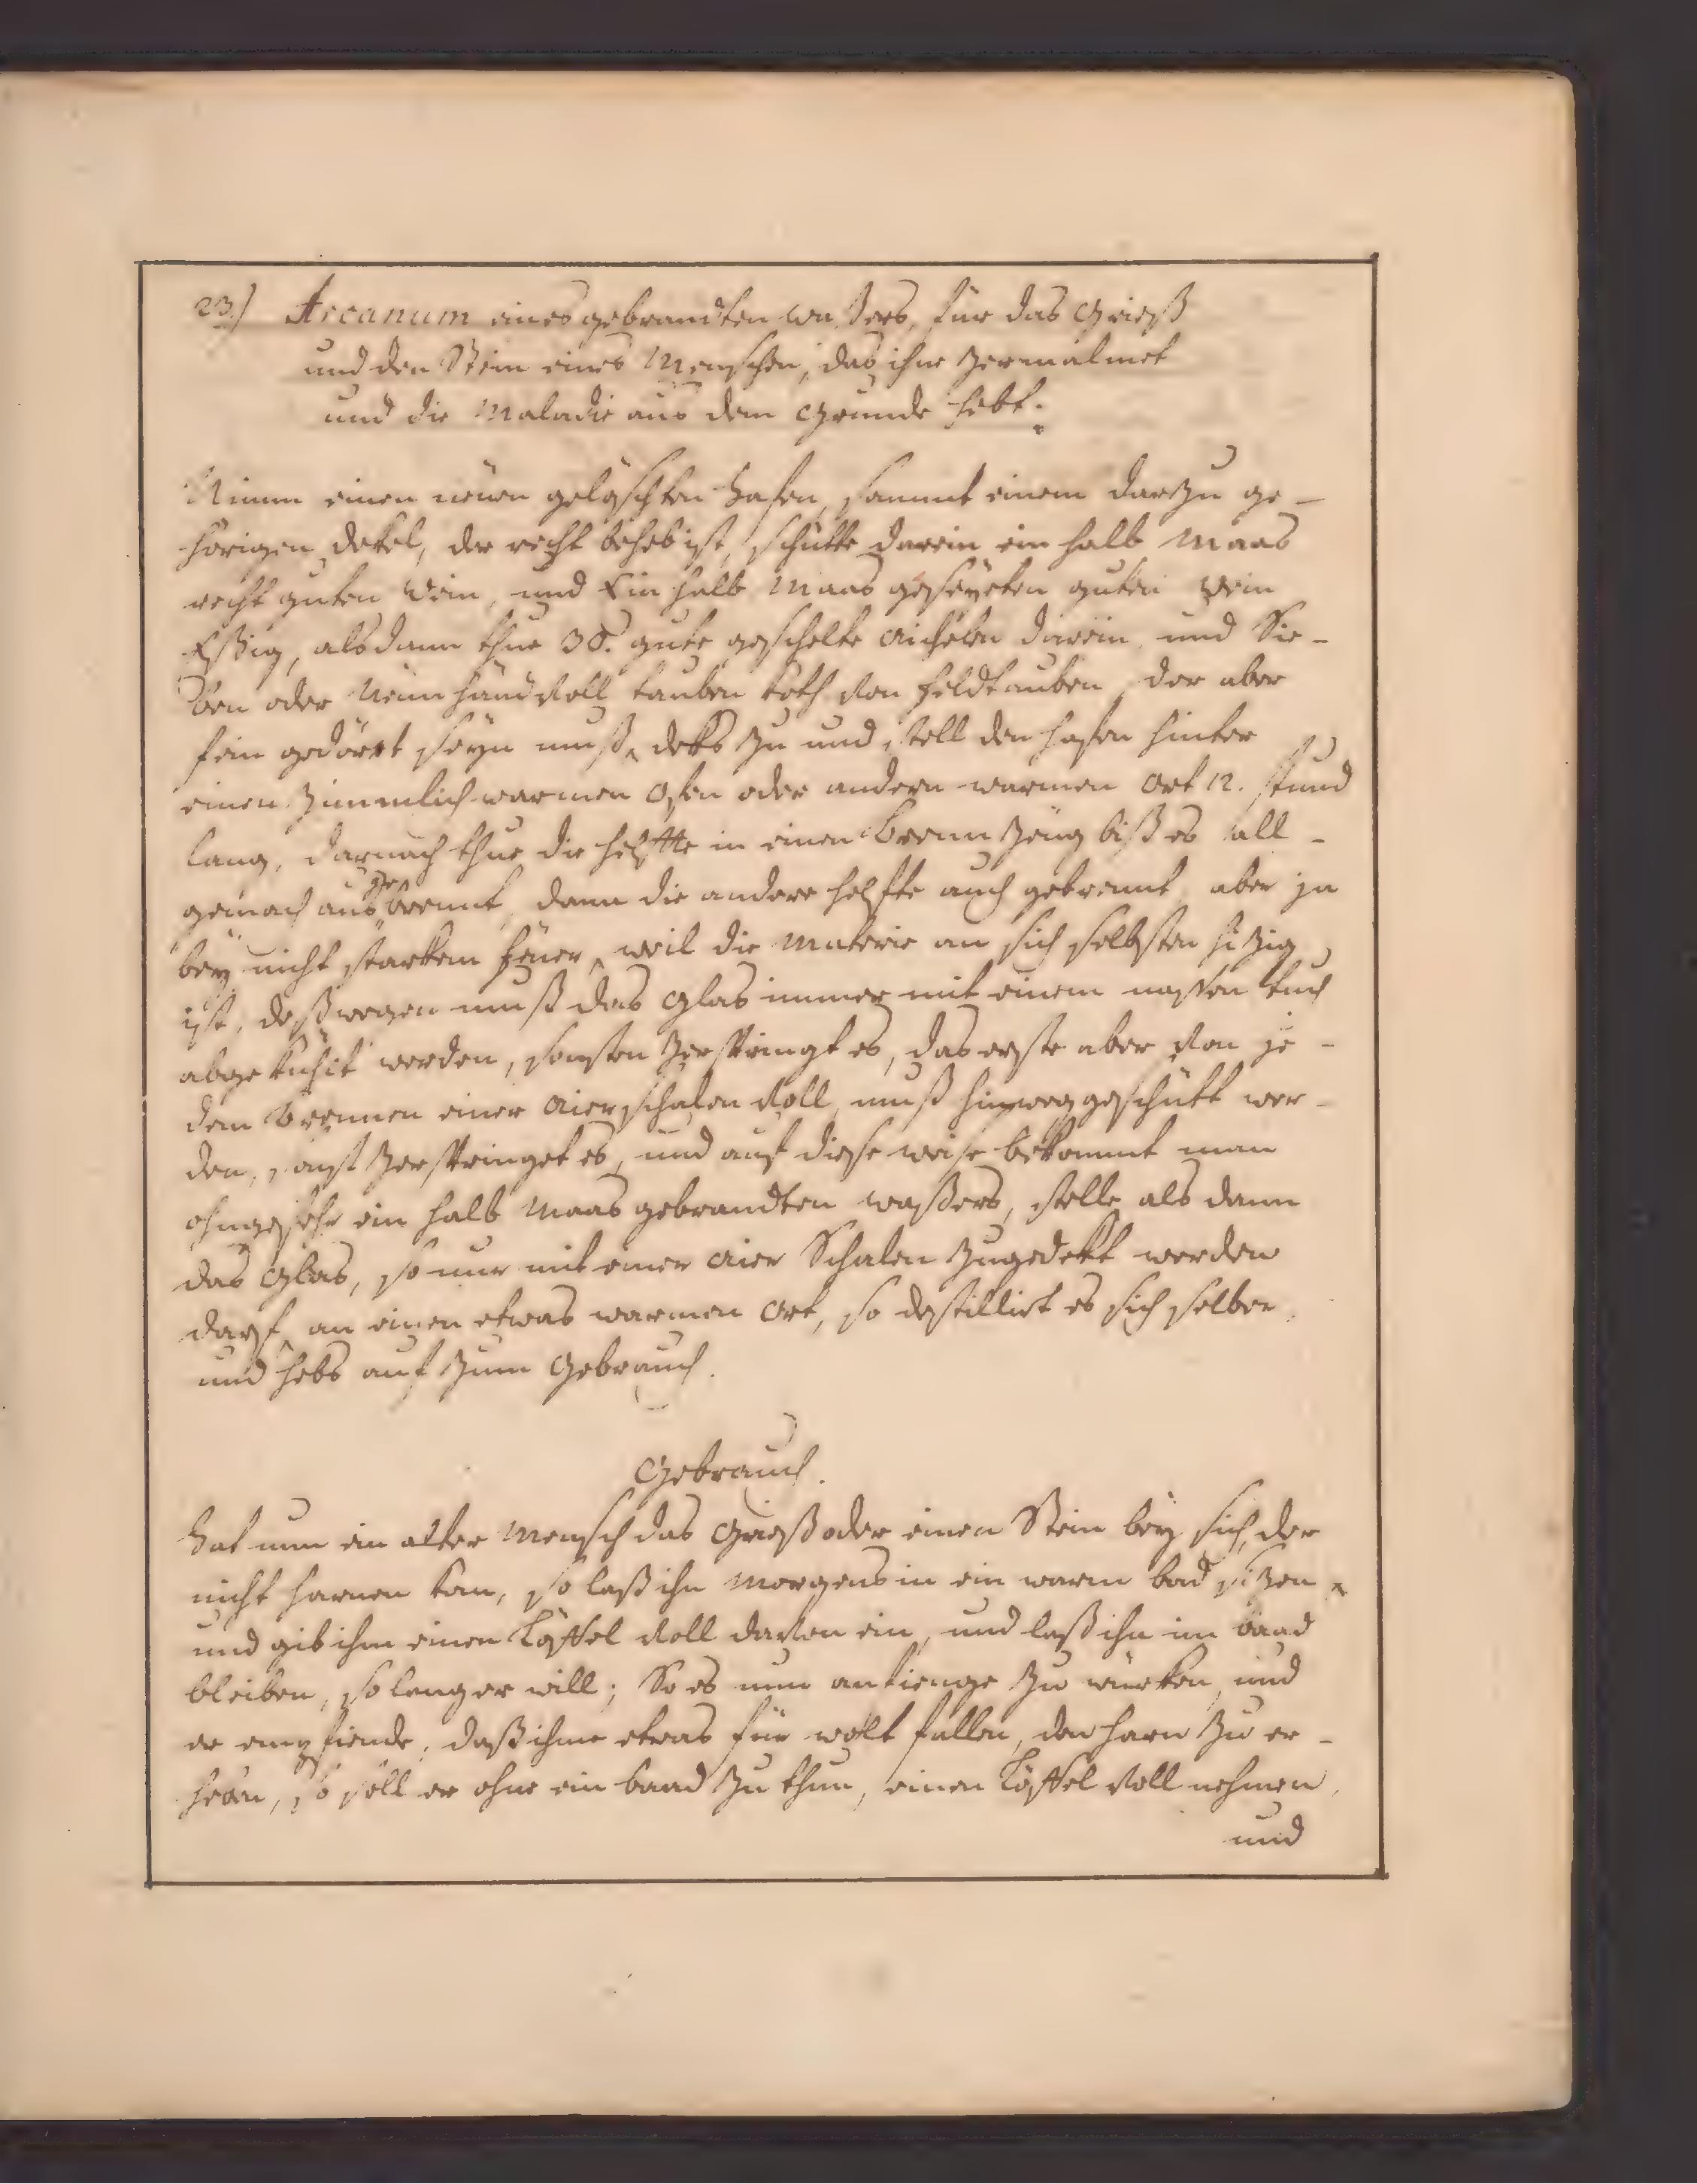 23.) Arcanum eines gebrandten waßers, für das Grieß
und den Stein eines Menschen, das ihne zermalmet
und die Maladie aus dem Grunde hebt.
Nimm einen neüen gelöschten Hafen, sammt einem darzu ge-
hörigen dekel, der recht beheb ist, schütte darein ein halb Maas
recht guten Wein, und Ein halb Maas geseyeten guten Wein
Eßig, alsdann thue 30. gute geschelte Aichelen darein, und Sie-
ben oder Neün händ voll tauben koth von feldtauben, der aber
fein gedörrt seyn muß, deks zu und stell den hafen hinter
einen zimmlich warmen Ofen oder andern warmen Ort 12. stund
lang, darnach thue die helfte in einen Brenn zeüg biß es all-
gemach ausgebrennt, dann die andere helfte auch gebrennt, aber ja
bey nicht starkem feüer, weil die Materie an sich selbsten hizig
ist, deßwegen muß das Glas immer mit einem naßen tuch
abgekühlt werden, sonsten zerspringt es, das erste aber von je-
dem Brennen einer Aierschalen voll, muß hinweg geschütt wer-
den, sonst zerspringet es, und auf diese weise bekommt man
ohngefehr ein halb Maas gebrandten waßers, stelle als dann
das Glas, so nur mit einer Aier Schalen zugedekt werden
darf, an einen etwas warmen Ort, so destillirt es sich selber,
und hebs auf zum Gebrauch.
Gebrauch.
Hat nun ein alter Mensch das Grieß oder einen Stein bey sich, der
nicht harnen kan, so laß ihn Morgens in ein warm bad sizen,
und gib ihm einen Löffel voll davon ein, und laß ihn im baad
bleiben, so lang er will; So es nun anfienge zu würken, und
er empfiende, daß ihme etwas für wolt fallen, den harn zu er-
heben, so soll er ohne ein baad zu thun, einen Löffel voll nehmen,
und